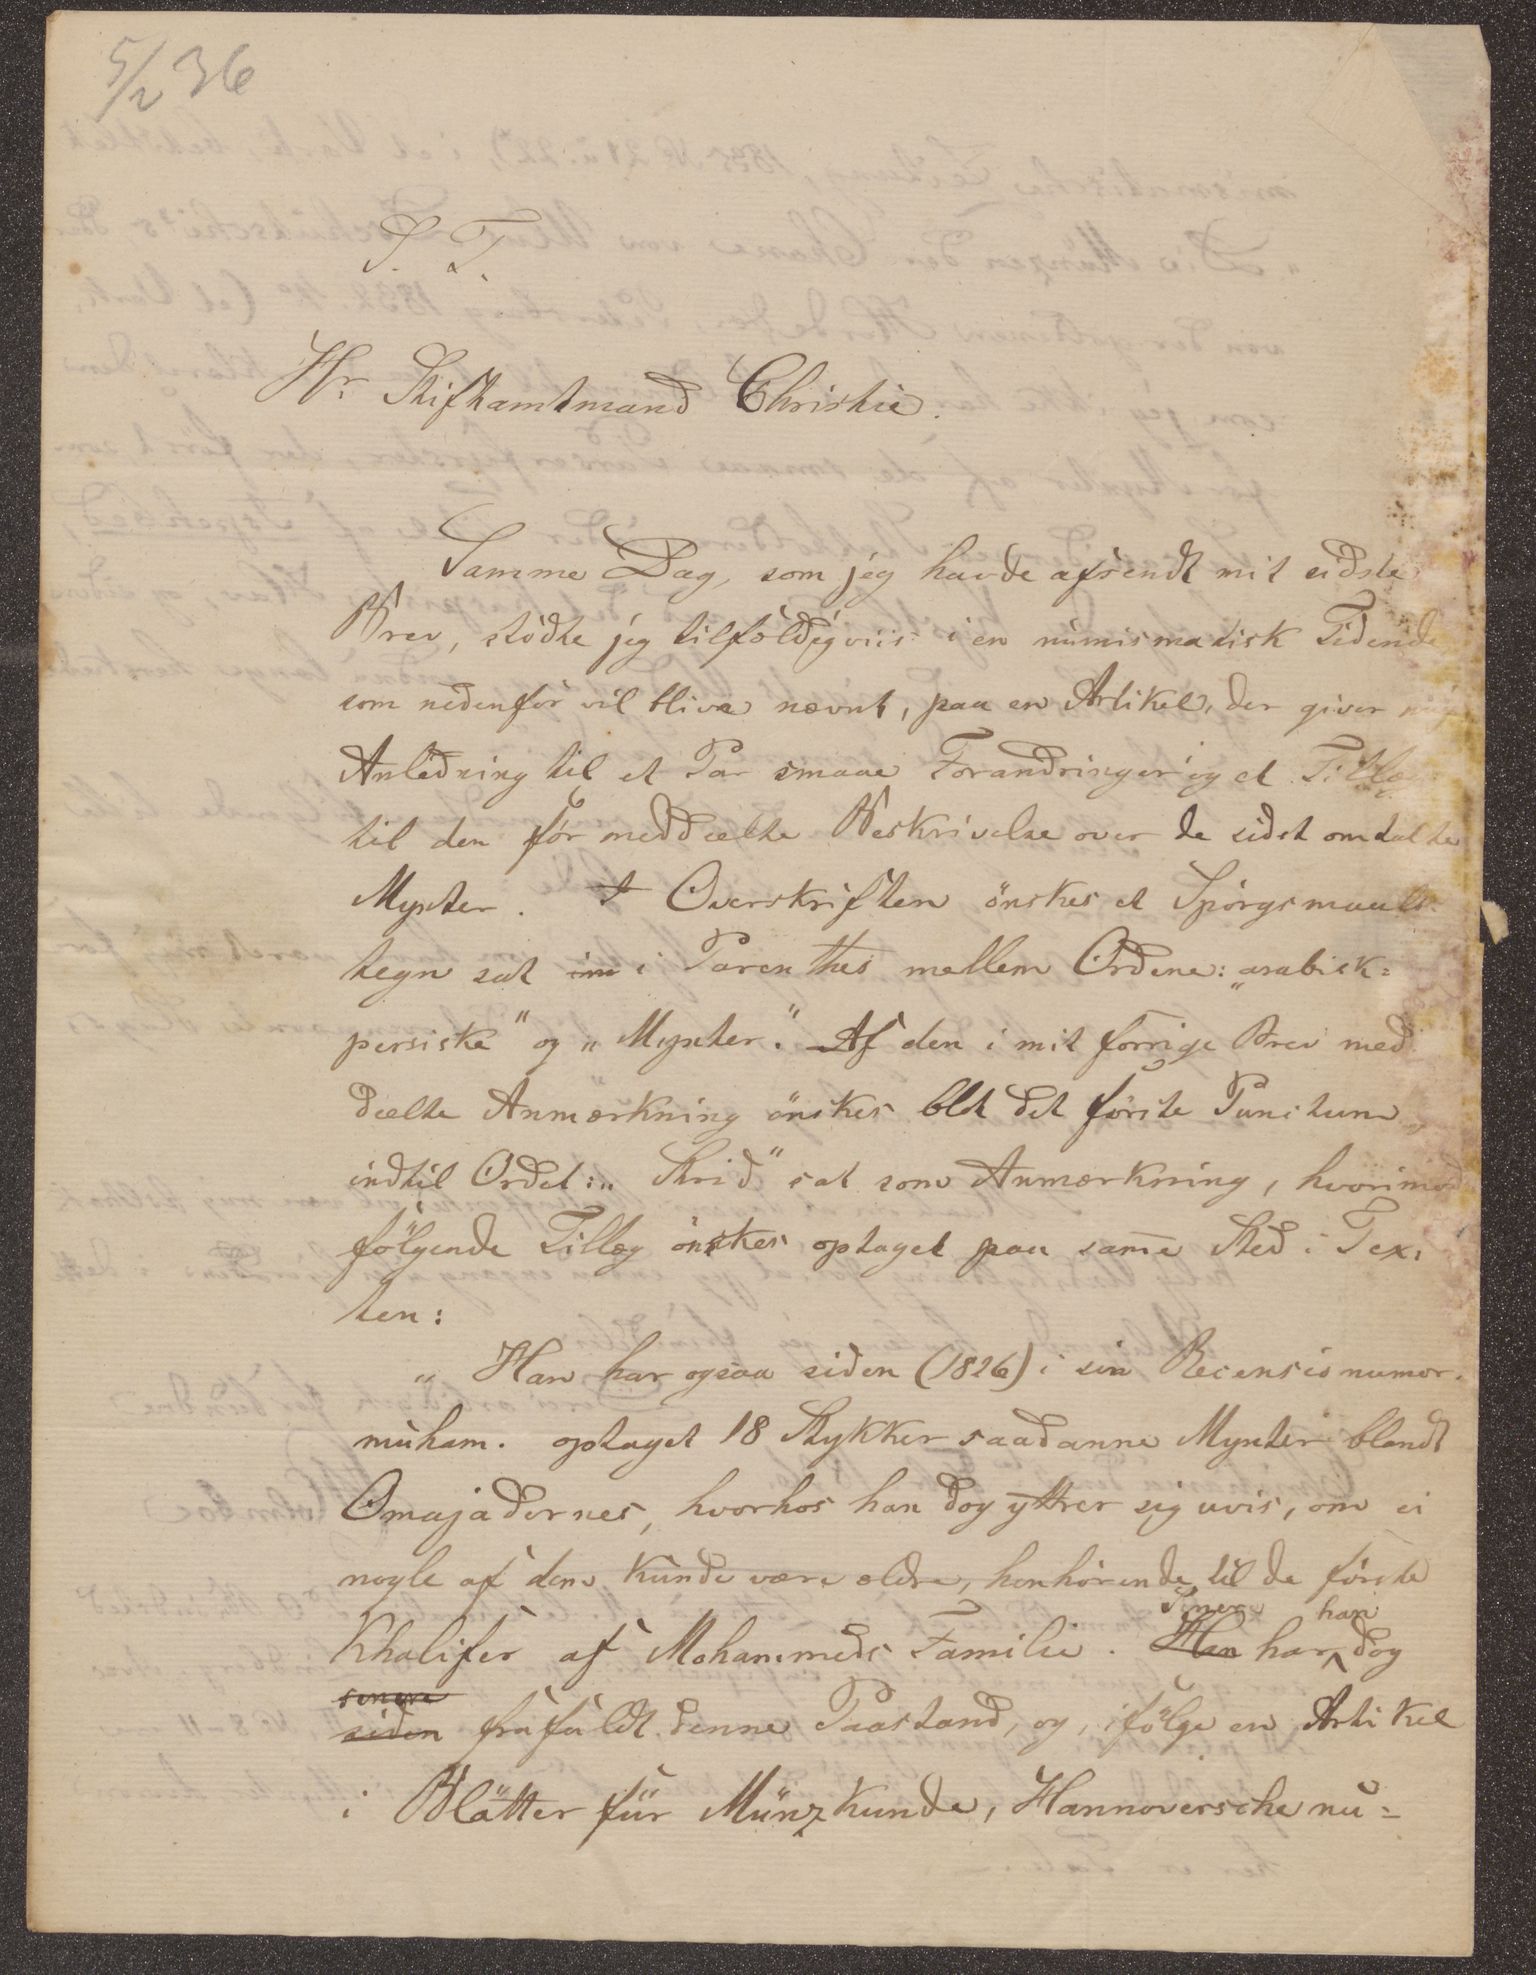 5/2 36
S. T.
Hr. Stiftamtmand Christie.
Samme Dag, som jeg havde afsendt mit sidste
Brev, stödte jeg tilfoldigviis i en numismatisk Tidende
som nedenfor vil blive nævnt, paa en Artikel, der giver mig
Anledning til et Par smaae Forandringer og et Tillæg
til den før meddeelte Beskrivelse over de sidst omtalte
Mynter. I Overskriften önskes et Spörgsmaals-
tegn sat i Parenthes mellem Ordene: „arabisk=
persiske" og „Mynter". Af den i mit forrige Brev med
deelte Anmærkning önskes blot det förste Punctum,
indtil Ordet: „Skrid" sat som Anmærkning, hvorimod
fölgende Tillæg önskes optaget paa sam̄e Sted i Tex-
ten:
„Han har ogsaa siden (1826) i sin Recensio numor.
muham. optaget 18 Stykker saadanne Mynter blandt
Omajadernes, hvorhos han dog yttrer sig uvis, om ei
nogle af dem kunde være ældre, henhörende til de förste
Khalifer af Mohammeds Familie. Han Siden har han dog
senere siden frafaldt denne Paastand, og, ifölge en Artikel
i Blätter für Münzkunde, Hannoversche nu=